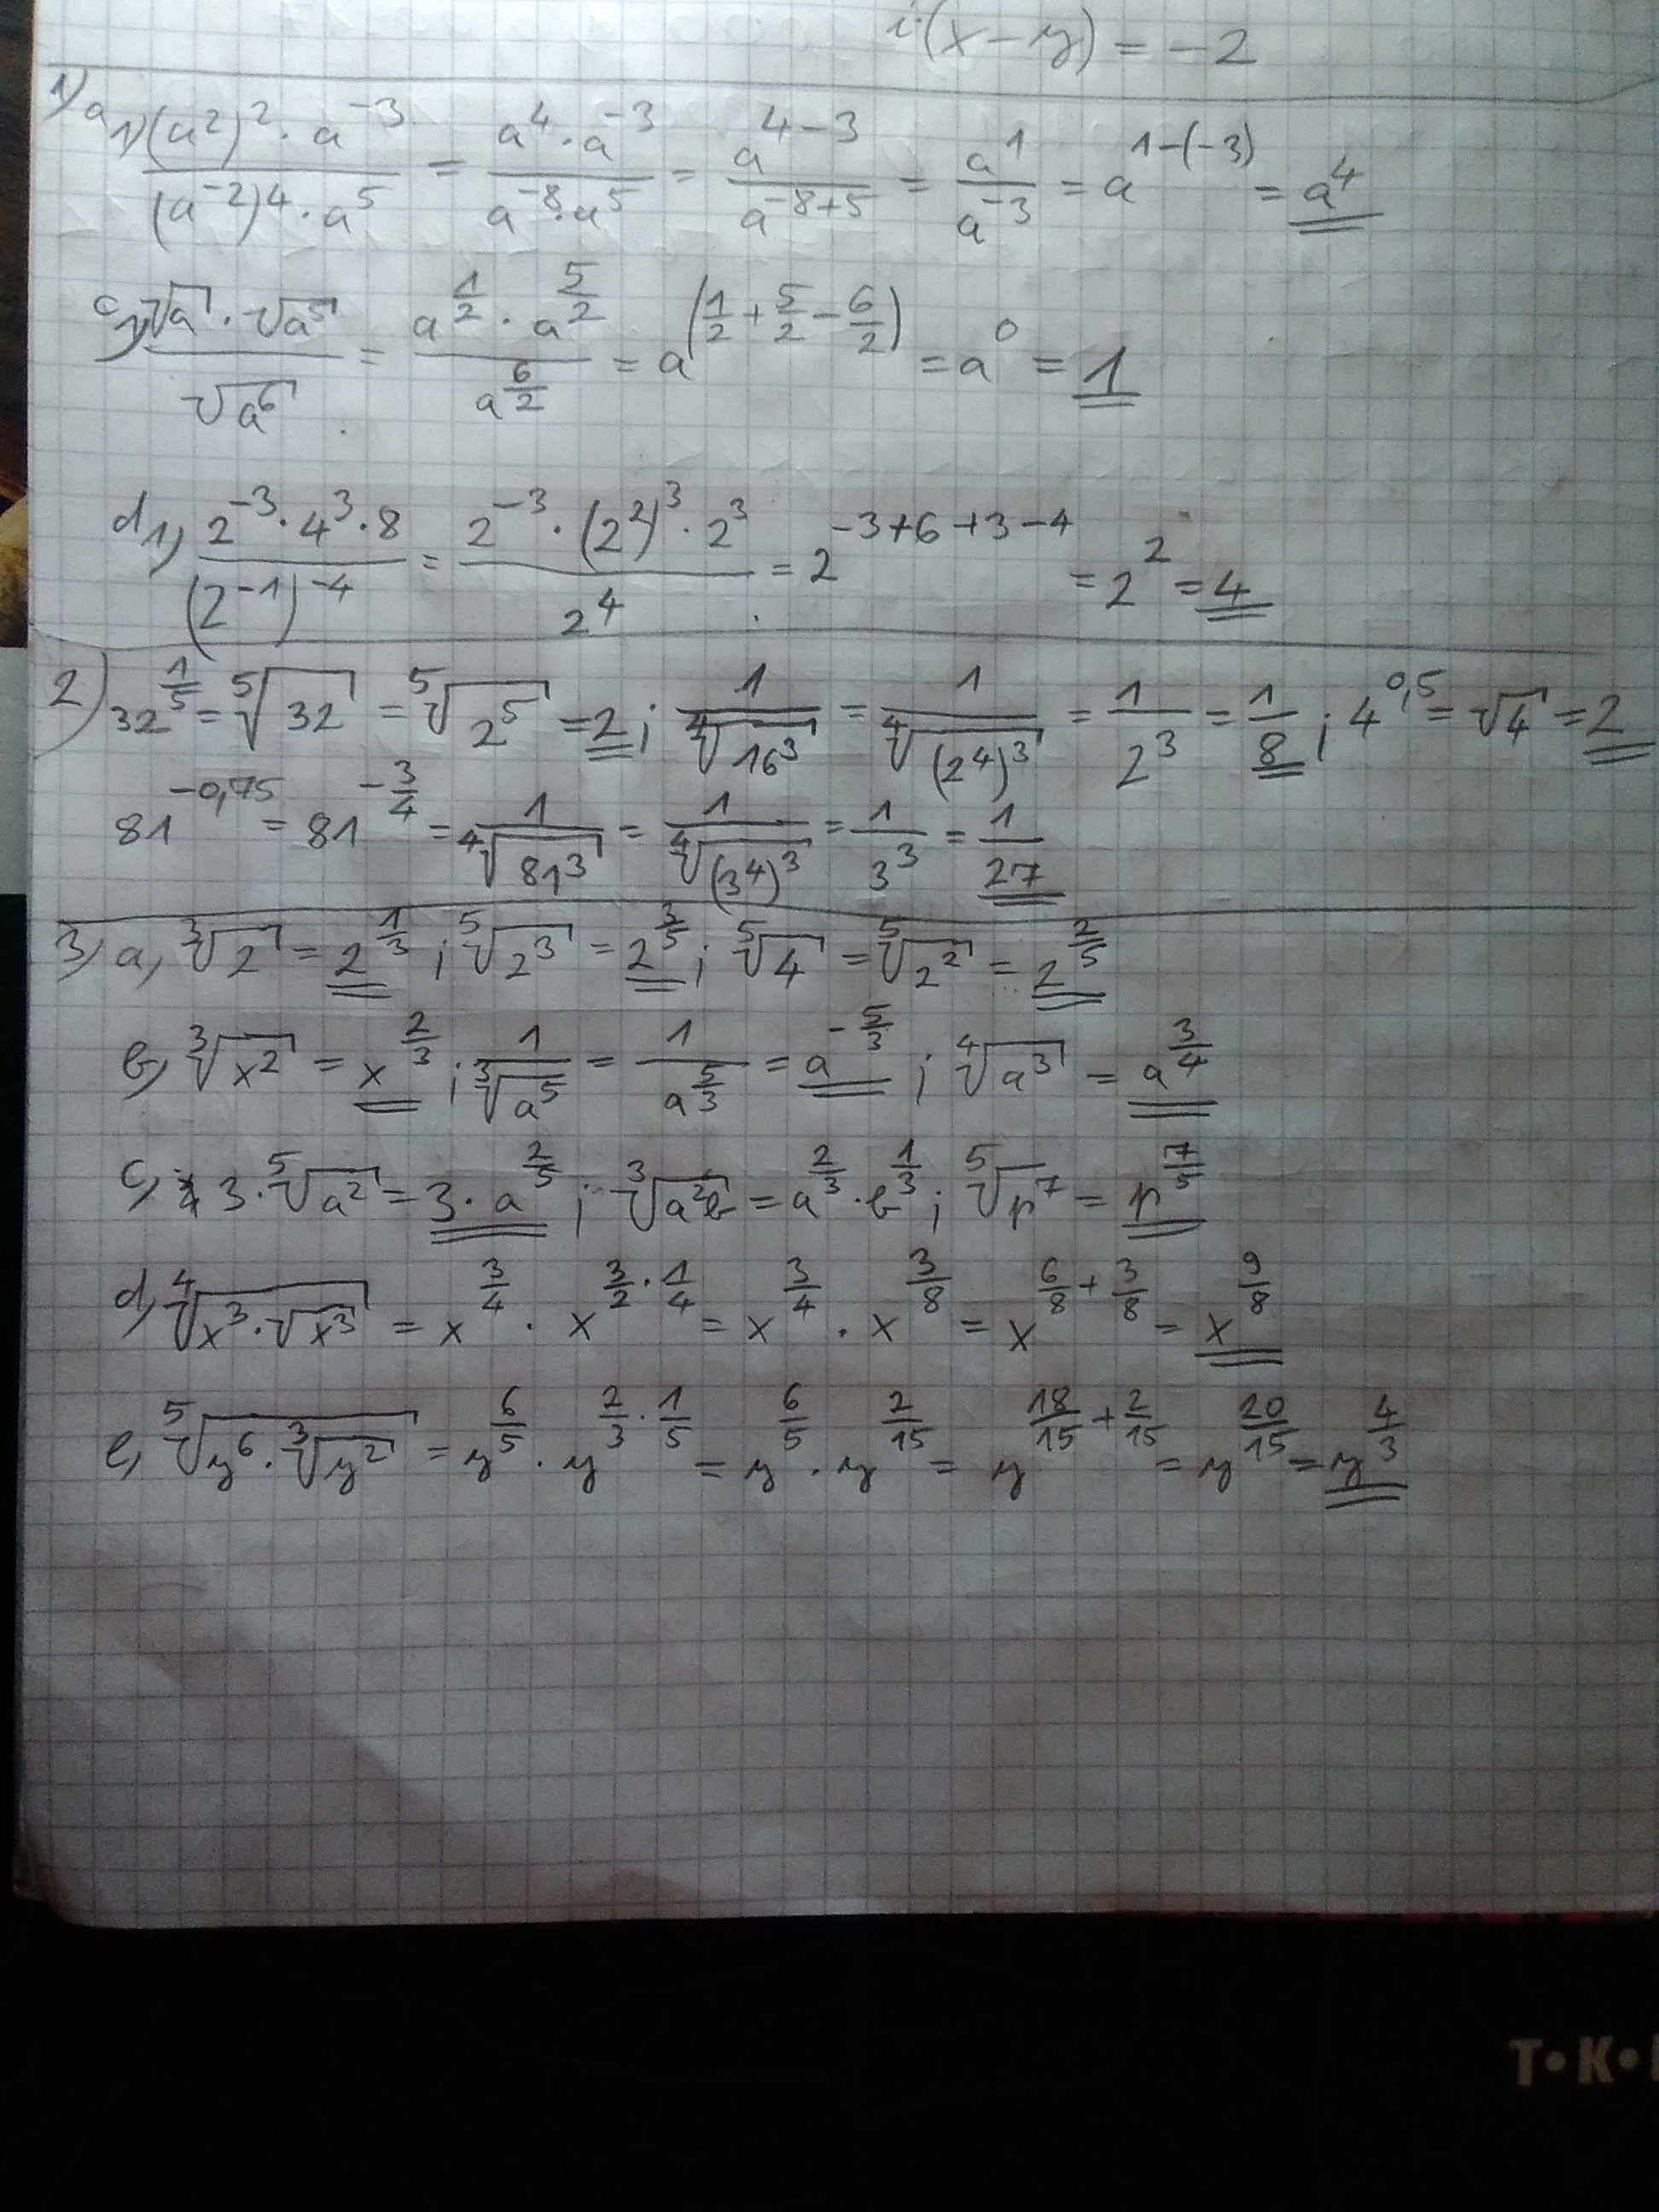 i·(x-y) = -2
1) a1) (a²)²·a⁻³ / (a⁻²)⁴·a⁵ = a⁴·a⁻³ / a⁻⁸·a⁵ = a⁴⁻³ / a⁻⁸⁺⁵ = a¹ / a⁻³ = a¹⁻⁽⁻³⁾ = a⁴
c1) √a · √a⁵ / √a⁶ = a^(1/2) · a^(5/2) / a^(6/2) = a^(1/2 + 5/2 - 6/2) = a⁰ = 1
d1) 2⁻³·4³·8 / (2⁻¹)⁻⁴ = 2⁻³·(2²)³·2³ / 2⁴ = 2^(-3+6+3-4) = 2² = 4
2) 32^(1/5) = ⁵√32 = ⁵√2⁵ = 2; 1/⁴√16³ = 1/⁴√(2⁴)³ = 1/2³ = 1/8; 4^0,5 = √4 = 2
81^-0,75 = 81^(-3/4) = 1/⁴√81³ = 1/⁴√(3⁴)³ = 1/3³ = 1/27
3) a, ³√2 = 2^(1/3); ⁵√2³ = 2^(3/5); ⁵√4 = ⁵√2² = 2^(2/5)
b, ³√x² = x^(2/3); 1/³√a⁵ = 1/a^(5/3) = a^(-5/3); ⁴√a³ = a^(3/4)
c, 3·⁵√a² = 3·a^(2/5); ³√a²b = a^(2/3)·b^(1/3); ⁵√p⁷ = p^(7/5)
d, ⁴√x³·√x³ = x^(3/4) · x^(3/2·1/4) = x^(3/4) · x^(3/8) = x^(6/8+3/8) = x^(9/8)
e, ⁵√y⁶·³√y² = y^(6/5) · y^(2/3·1/5) = y^(6/5) · y^(2/15) = y^(18/15+2/15) = y^(20/15) = y^(4/3)
T·K·